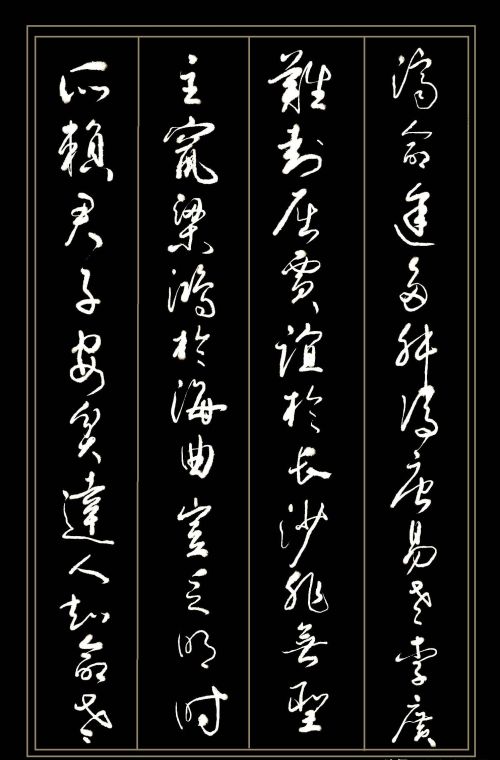 濟命途多舛馮唐易老李廣
難封屈賈誼於長沙非無聖
主竄梁鴻於海曲豈乏明時
所賴君子安貧達人知命老